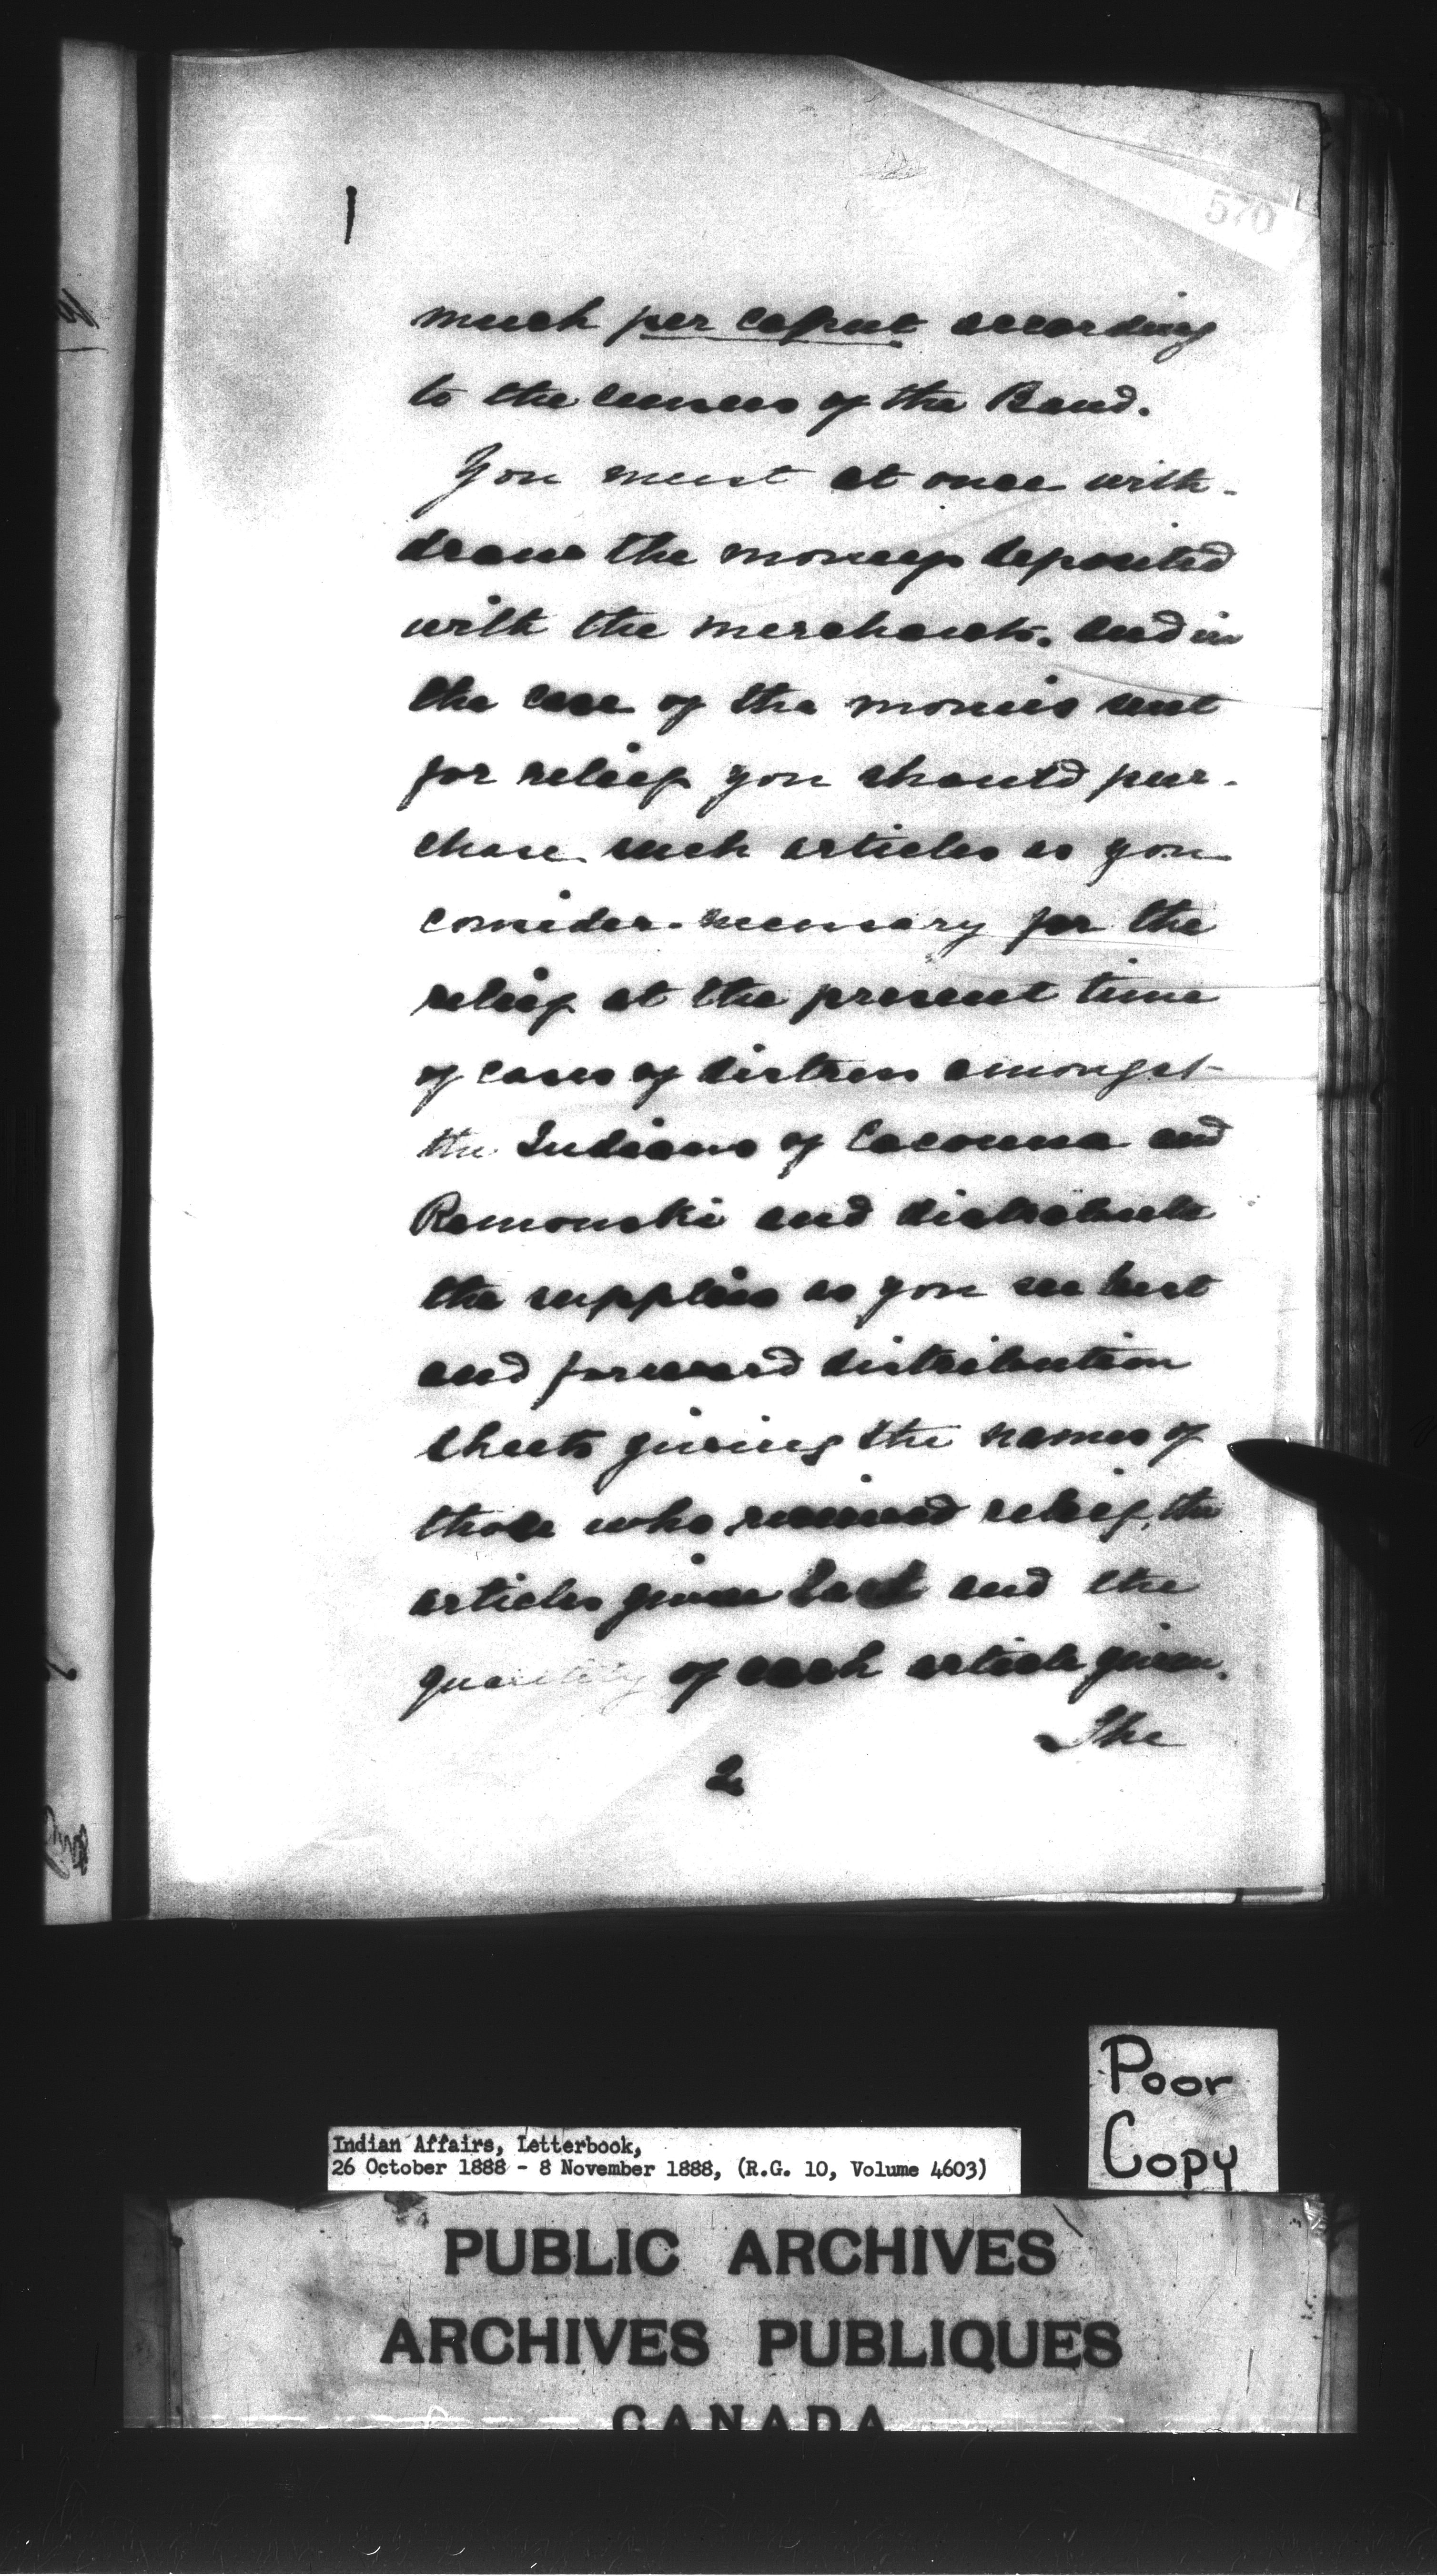 570
much per caput according
to the census of the Band.
You must at once with-
draw the moneys deposited
with the merchants. and in
the case of the monies sent
for relief you should pur-
chase such articles as you
consider necessary for the
relief at the present time
of cases of distress amongst
the Indians of Cacouna and
Remouski and distribute
the supplies as you see best
and forward distribution
sheets giving the names of
those who received relief, the
articles given and the
quantity of each article given.
The
2
Poor
Copy
Indian Affairs, Letterbook,
26 October 1888 - 8 November 1888, (R.G. 10, Volume 4603)
PUBLIC ARCHIVES
ARCHIVES PUBLIQUES
CANADA